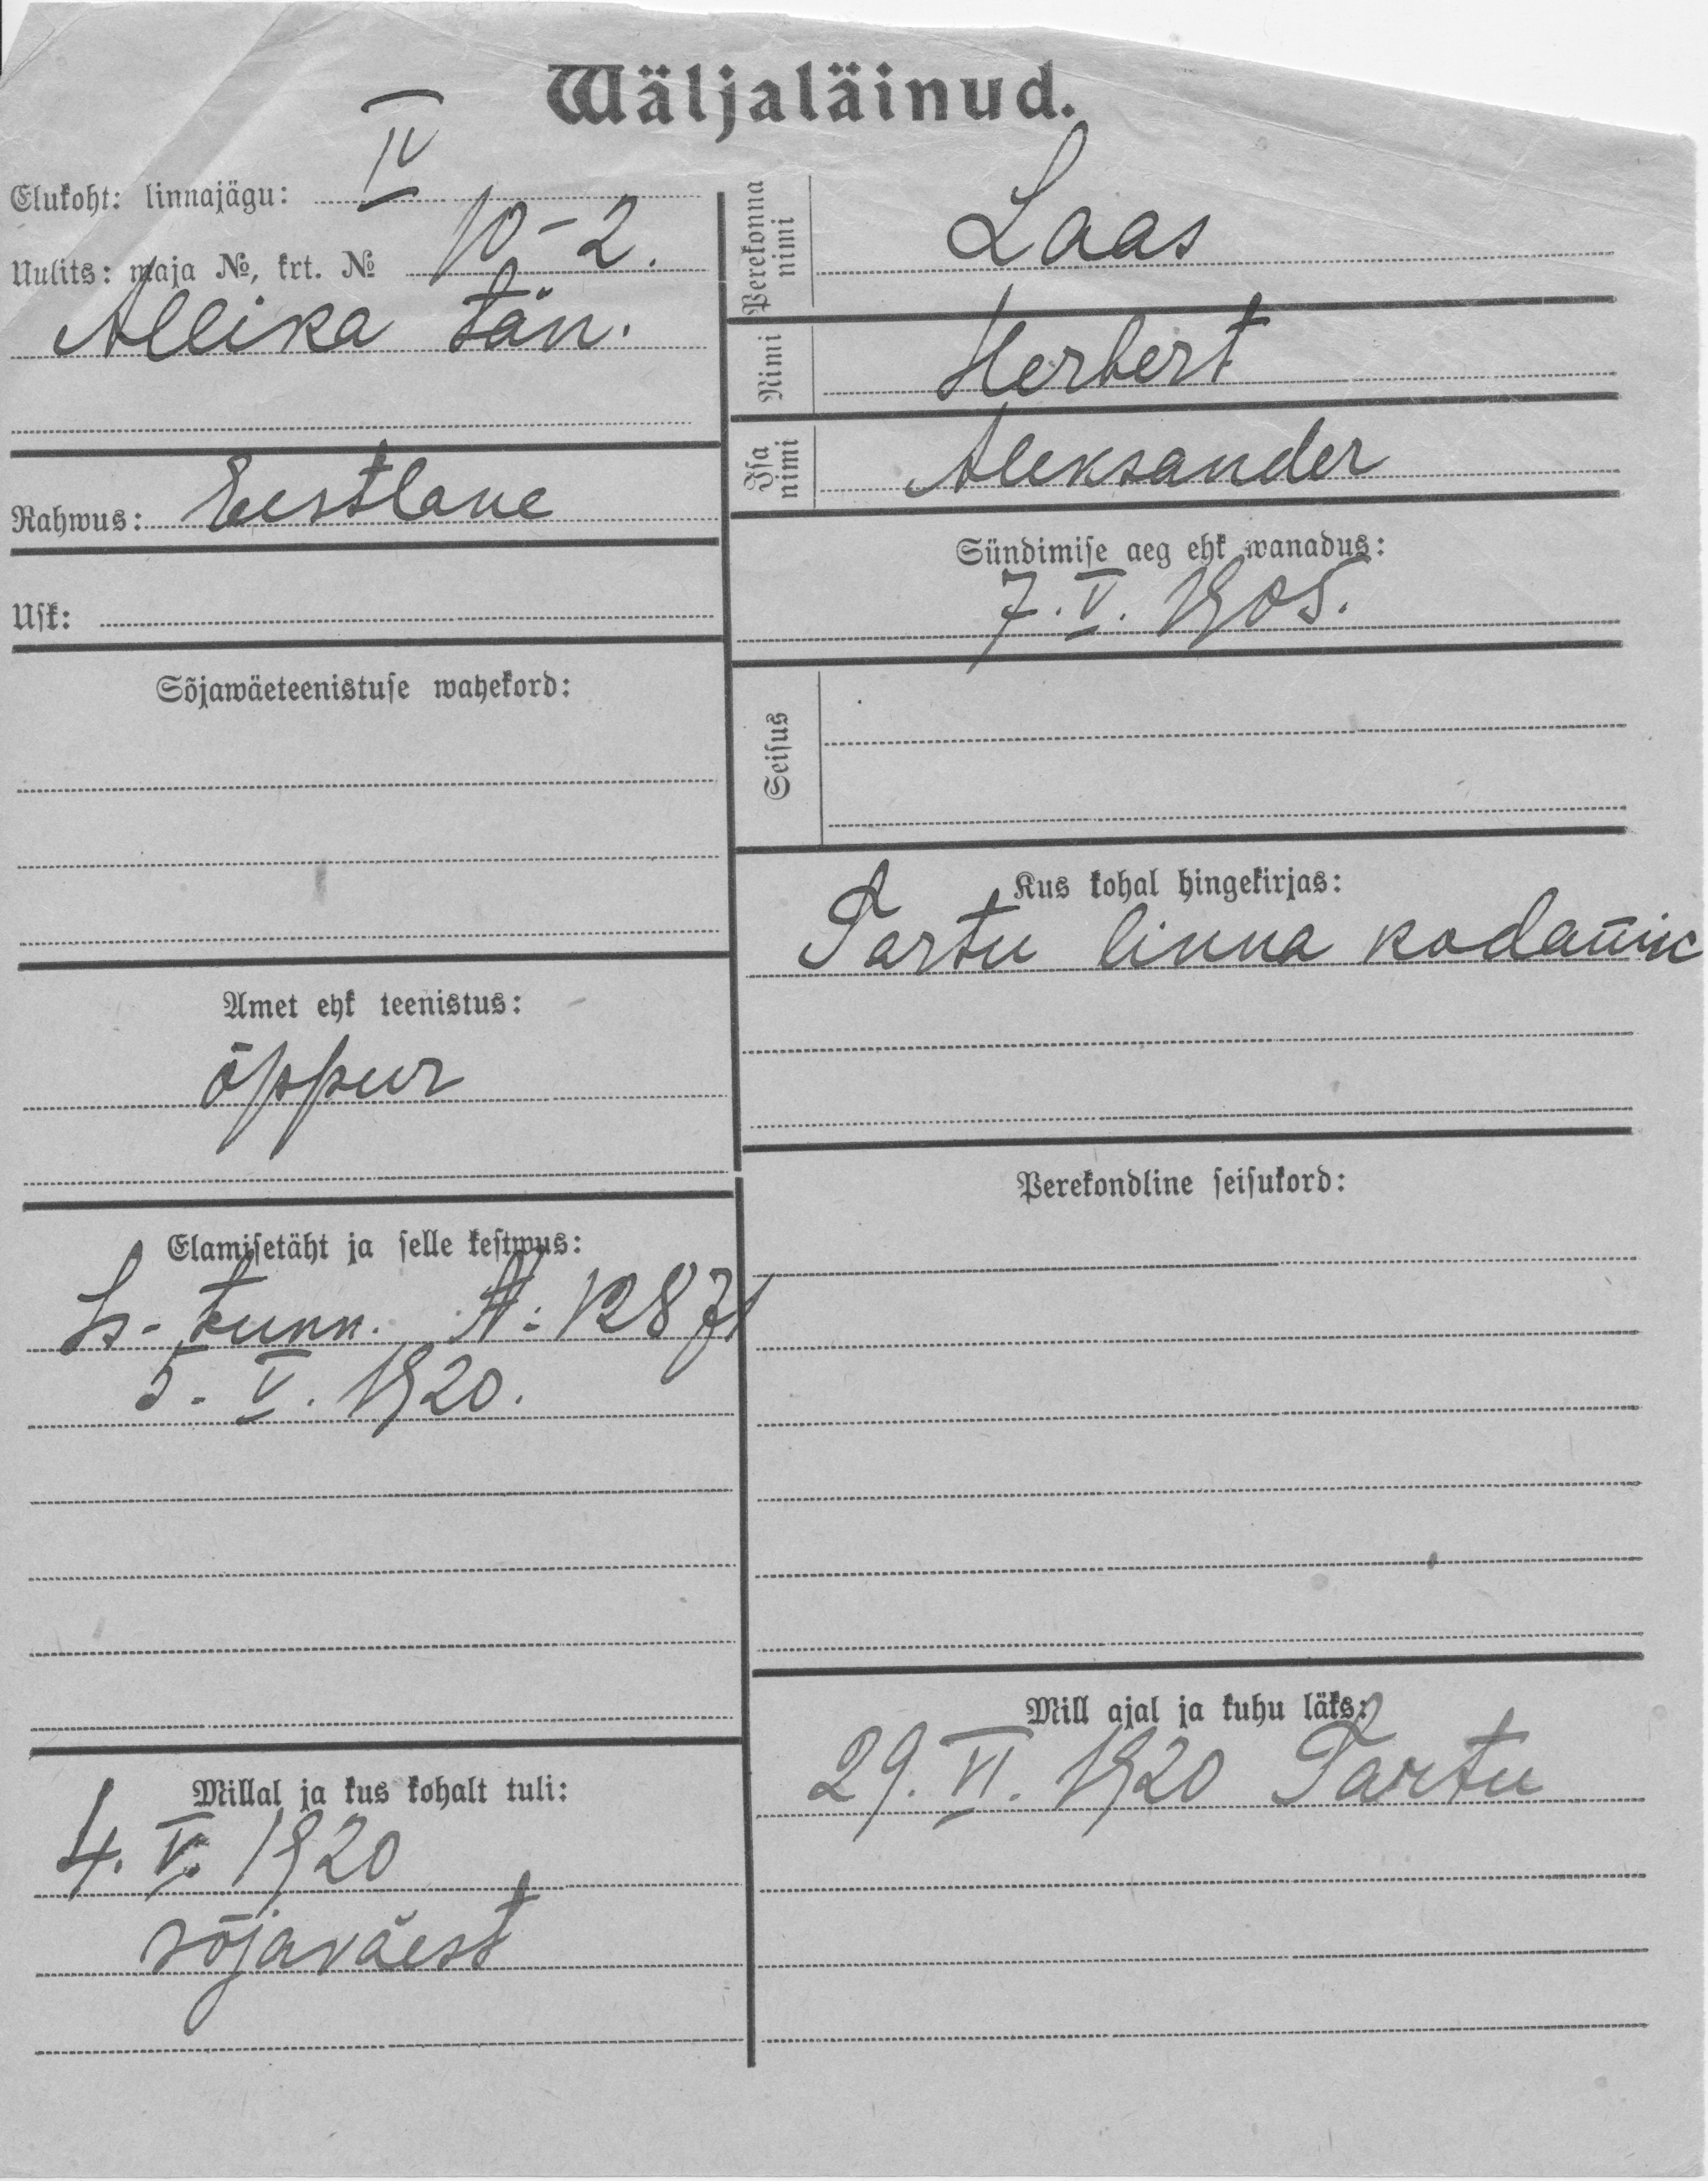 Wäljaläinud.
Elukoht: linnajägu: IV
Uulits: maja №, krt. № 10-2.
Allika tän.
Rahwus: Eestlane
Usk:
Sõjawäeteenistuse wahekord:
Amet ehk teenistus:
õppur
Elamisetäht ja selle kestwus:
tunn. №: 12871
5. V. 1920.
Millal ja kus kohalt tuli:
4. V. 1920
sõjaväest
Perekonna nimi Laas
Nimi Herbert
Isa nimi Aleksander
Sündimise aeg ehk wanadus:
7. V. 1905.
Seisus
Kus kohal hingekirjas:
Tartu linna kodanik
Perekondline seisukord:
Mill ajal ja kuhu läks:
29. VI. 1920 Tartu